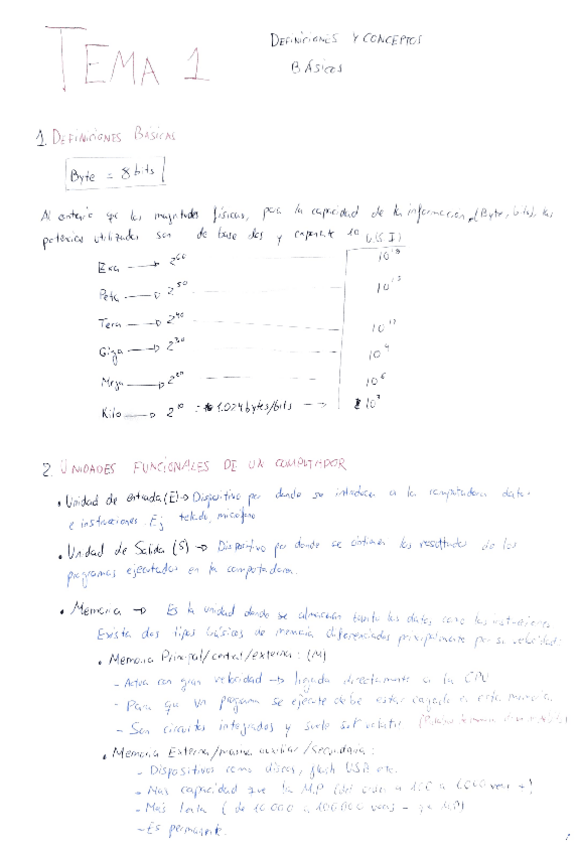 TEMA 1
DEFINICIONES Y CONCEPTOS
BÁSICOS
1. DEFINICIONES BÁSICAS
Byte = 8 bits
Al contrario que las magnitudes físicas, para la capacidad de la información (Byte, bits), las
potencias utilizadas son de base dos y exponente 10 (S.I)
Exa → 2^60 10^18
Peta → 2^50 10^15
Tera → 2^40 10^12
Giga → 2^30 10^9
Mega → 2^20 10^6
Kilo → 2^10 = 1.024 bytes/bits → 10^3
2. UNIDADES FUNCIONALES DE UN COMPUTADOR
• Unidad de entrada (E) → Dispositivo por donde se introduce a la computadora datos
e instrucciones. Ej teclado, micrófono
• Unidad de Salida (S) → Dispositivo por donde se obtienen los resultados de los
programas ejecutados en la computadora.
• Memoria → Es la unidad donde se almacenan tanto los datos como las instrucciones.
Existen dos tipos básicos de memoria diferenciados principalmente por su velocidad:
• Memoria Principal/central/externa: (M)
- Actua con gran velocidad → ligada directamente a la CPU
- Para que un programa se ejecute debe estar cargado en esta memoria.
- Son circuitos integrados y suele ser volatil
• Memoria Externa/masiva auxiliar/secundaria:
- Dispositivos como discos, flash USB etc.
- Mas capacidad que la M.P (del orden a 100 a 1000 veces +)
- Más lenta (de 10000 a 100000 veces - que M.P)
- Es permanente.